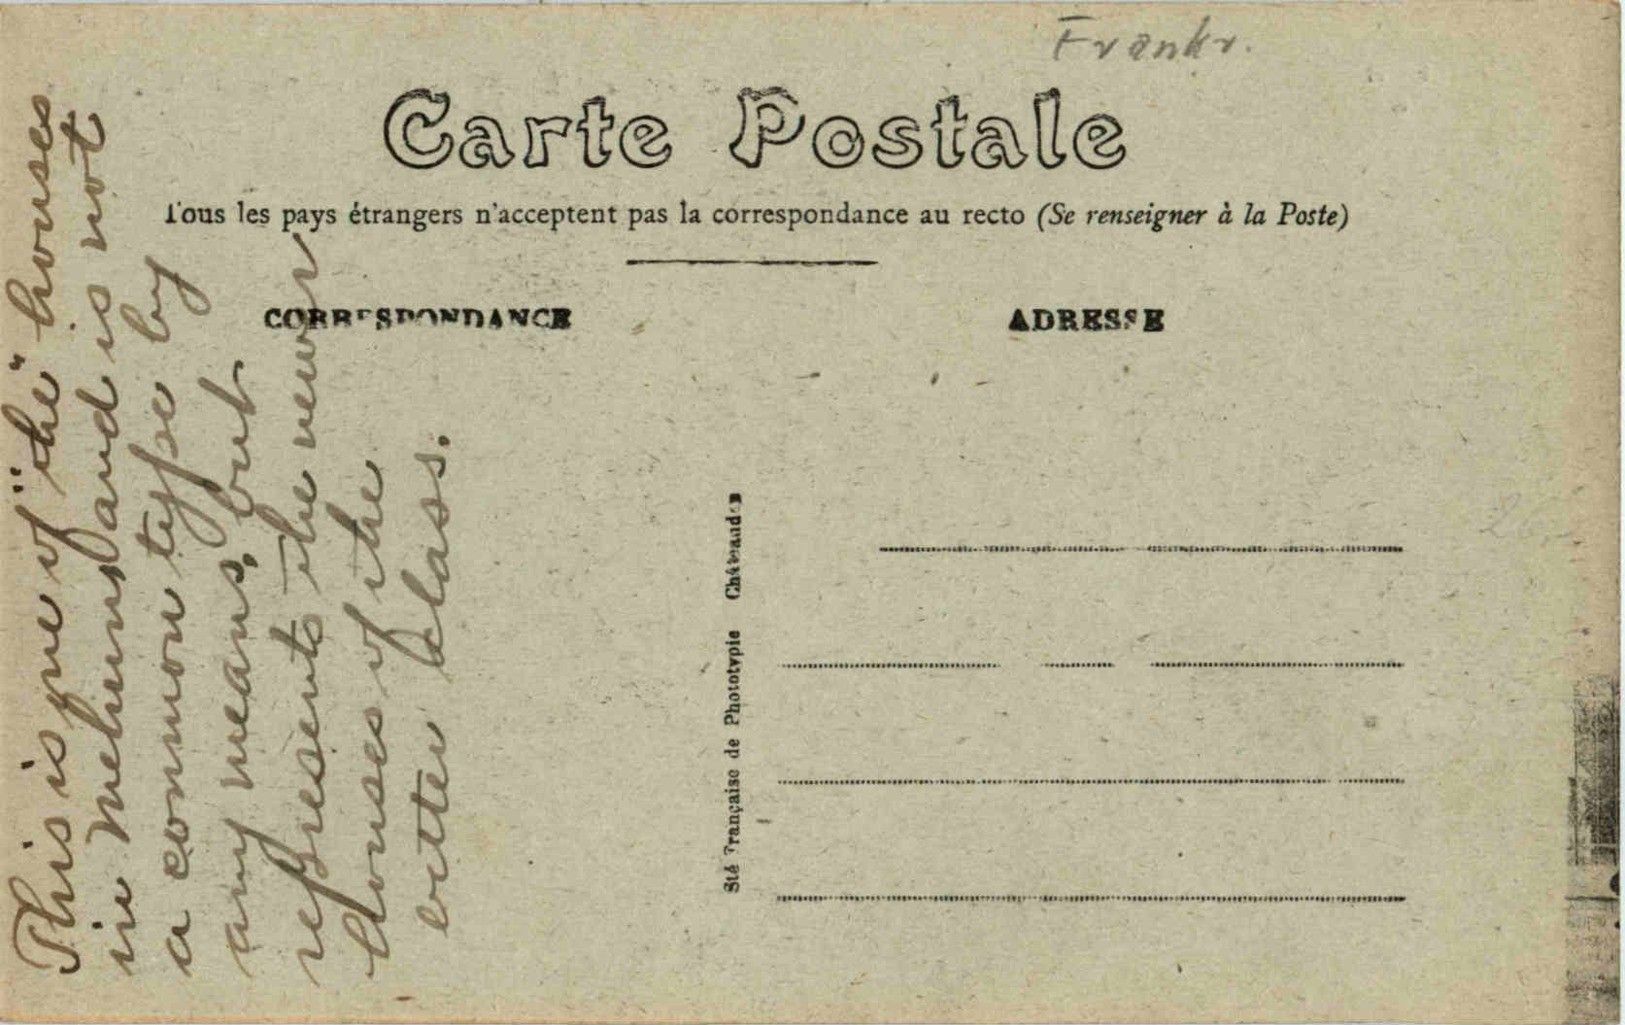 Frankr.
Carte Postale
Tous les pays étrangers n'acceptent pas la correspondance au recto (Se renseigner à la Poste)
CORRESPONDANCE
ADRESSE
This is one of "the" houses
in Mehun and is not
a common type by
any means, but
represents the newer
houses of the
better class.
Sté Française de Phototypie